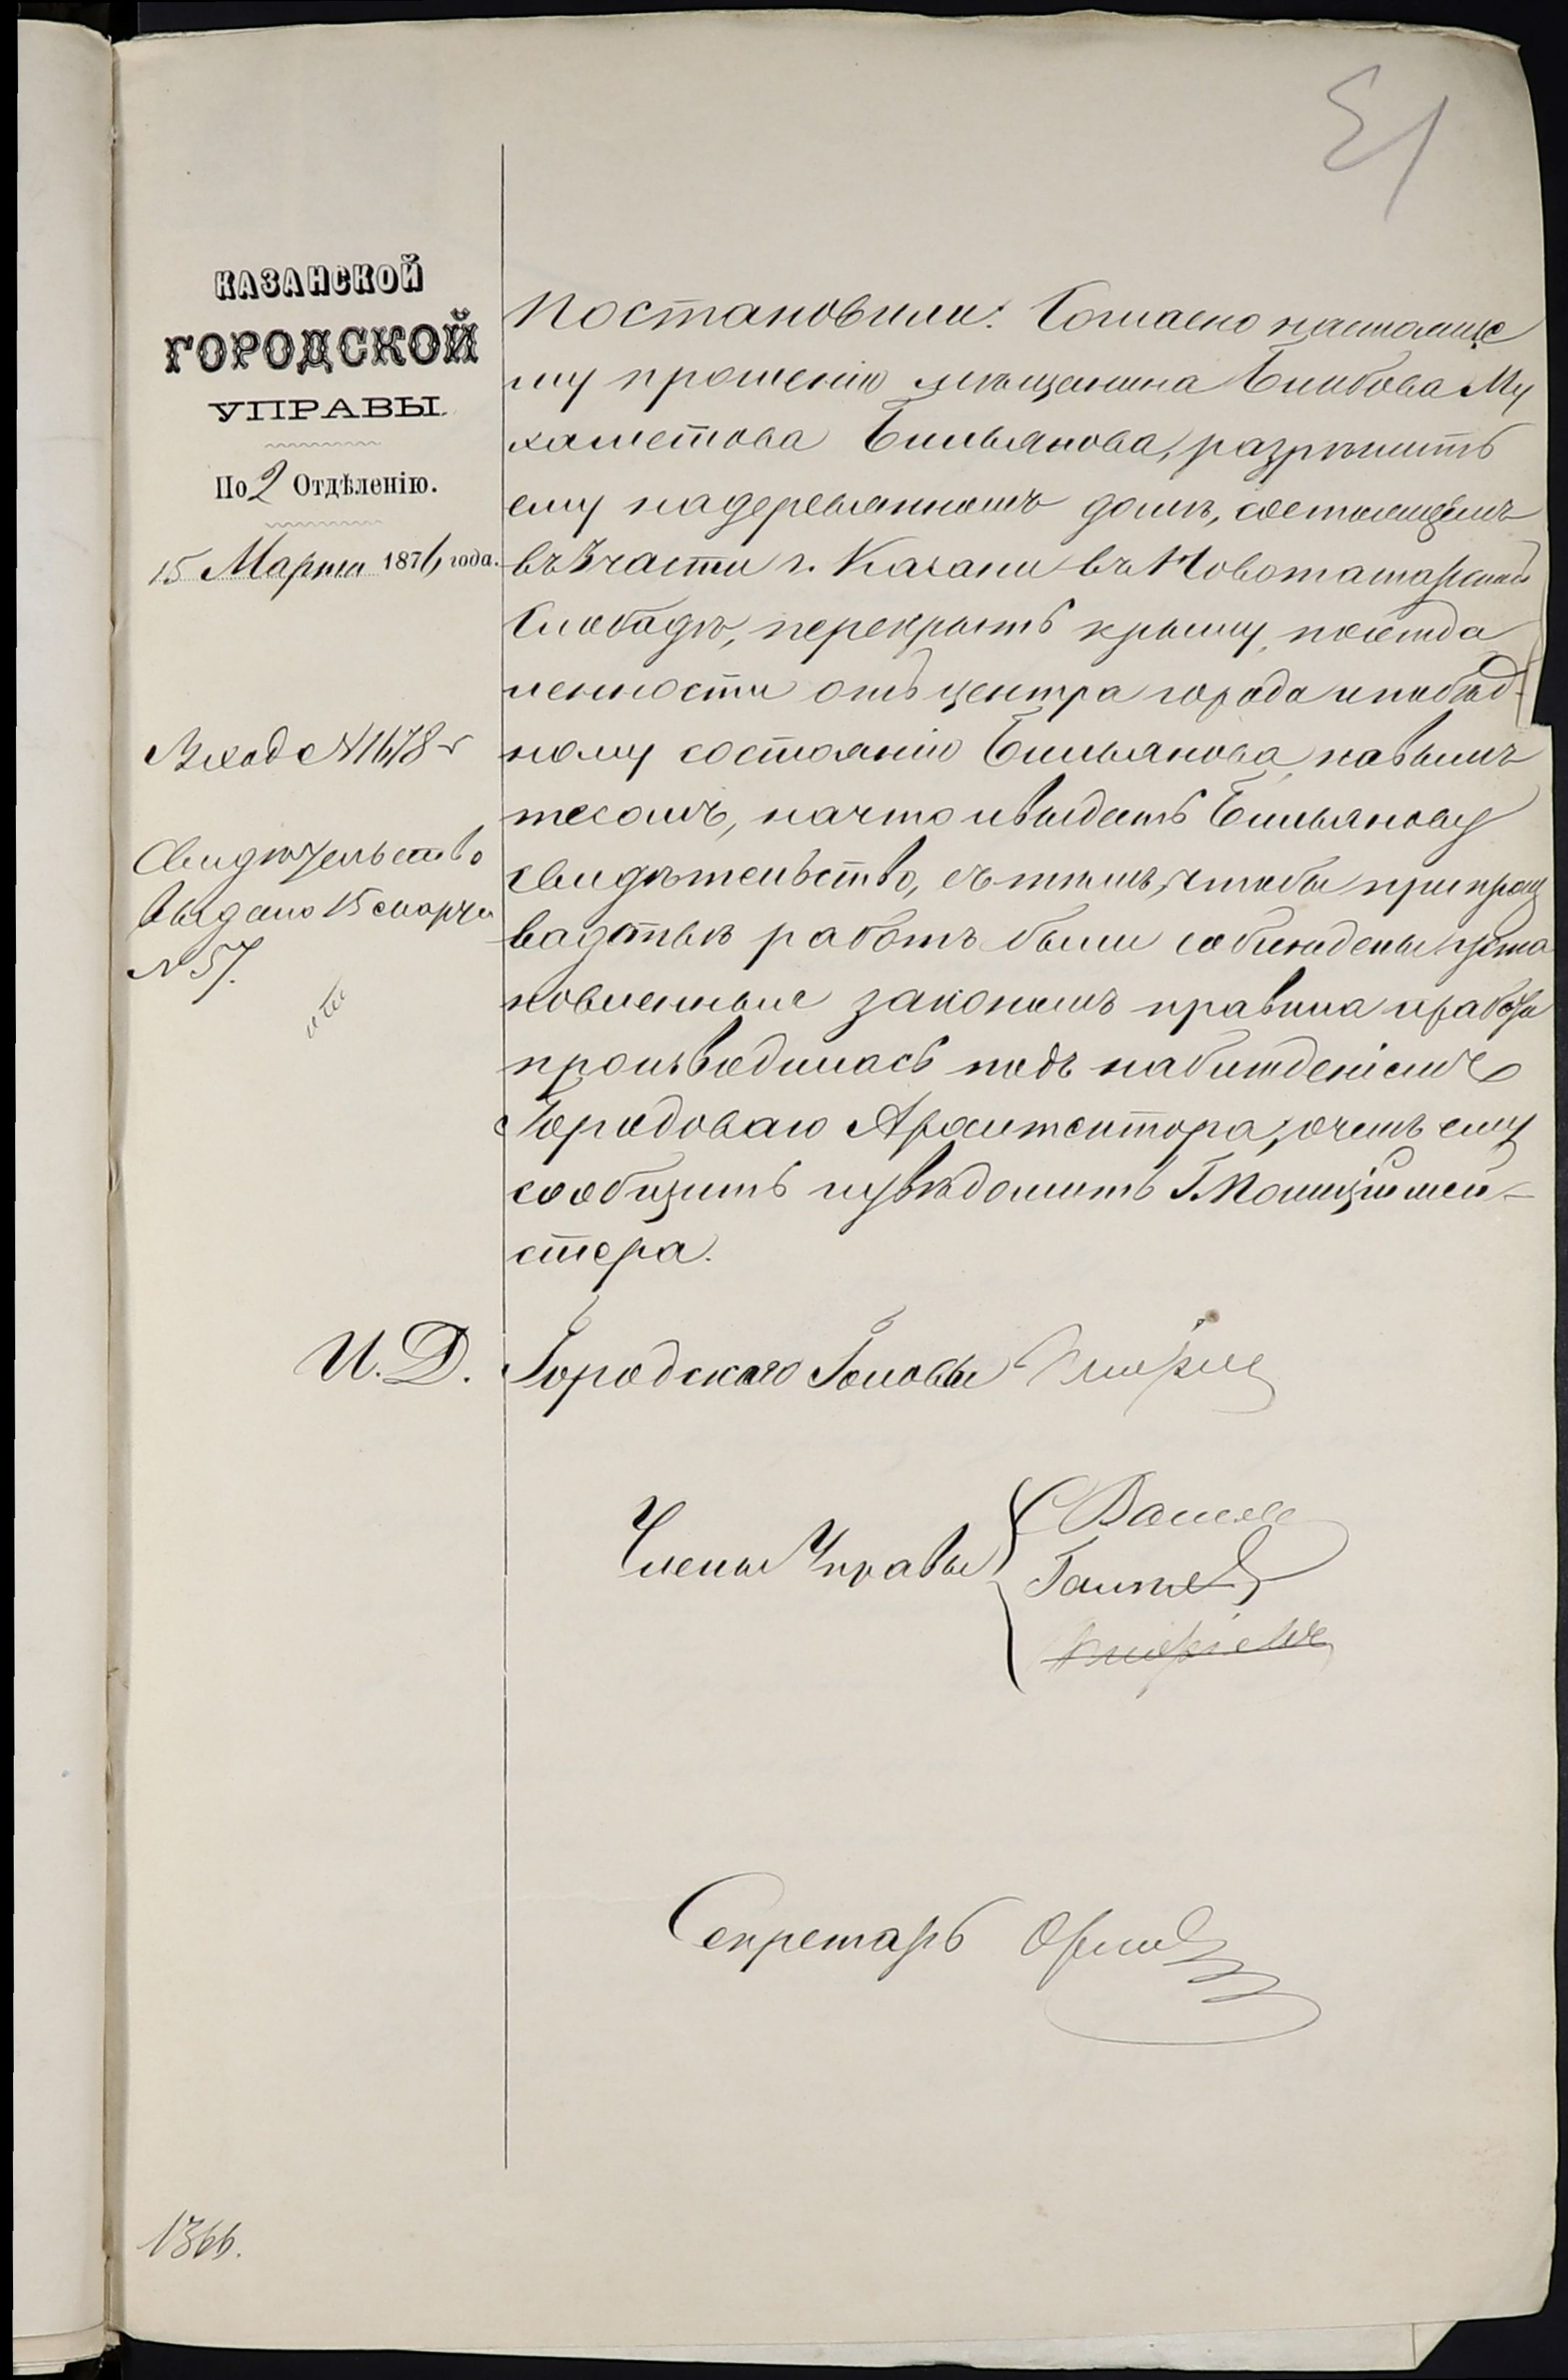 51
КАЗАНСКОЙ
ГОРОДСКОЙ
УПРАВЫ.
По 2 Отдѣленію.
15 Марта 1876 года.
Вход №1678
Свидѣтельство
выдано 15 марта
№ 57.
Постановили: Согласно настояще
му прошенію мѣщанина Му
хаметова разрѣшить
ему на деревянномъ домѣ, состоящемъ
въ 3 части г. Казани въ Новотатарской
Слободѣ, перекрыть крышу, по отда
ленности отъ центра города и по бѣд-
ному состоянію новымъ
тесомъ, на что и выдать
свидѣтельство, съ тѣмъ, чтобы при произ
водствѣ работъ были соблюдены уста
новленные закономъ правила и работа
производилась подъ наблюденіемъ
Городоваго Архитектора, о чемъ ему
сообщить и увѣдомить Г. Полиціймей-
стера.
И. Д. Городскаго Головы
Члены Управы
Секретарь Орлов
1366.